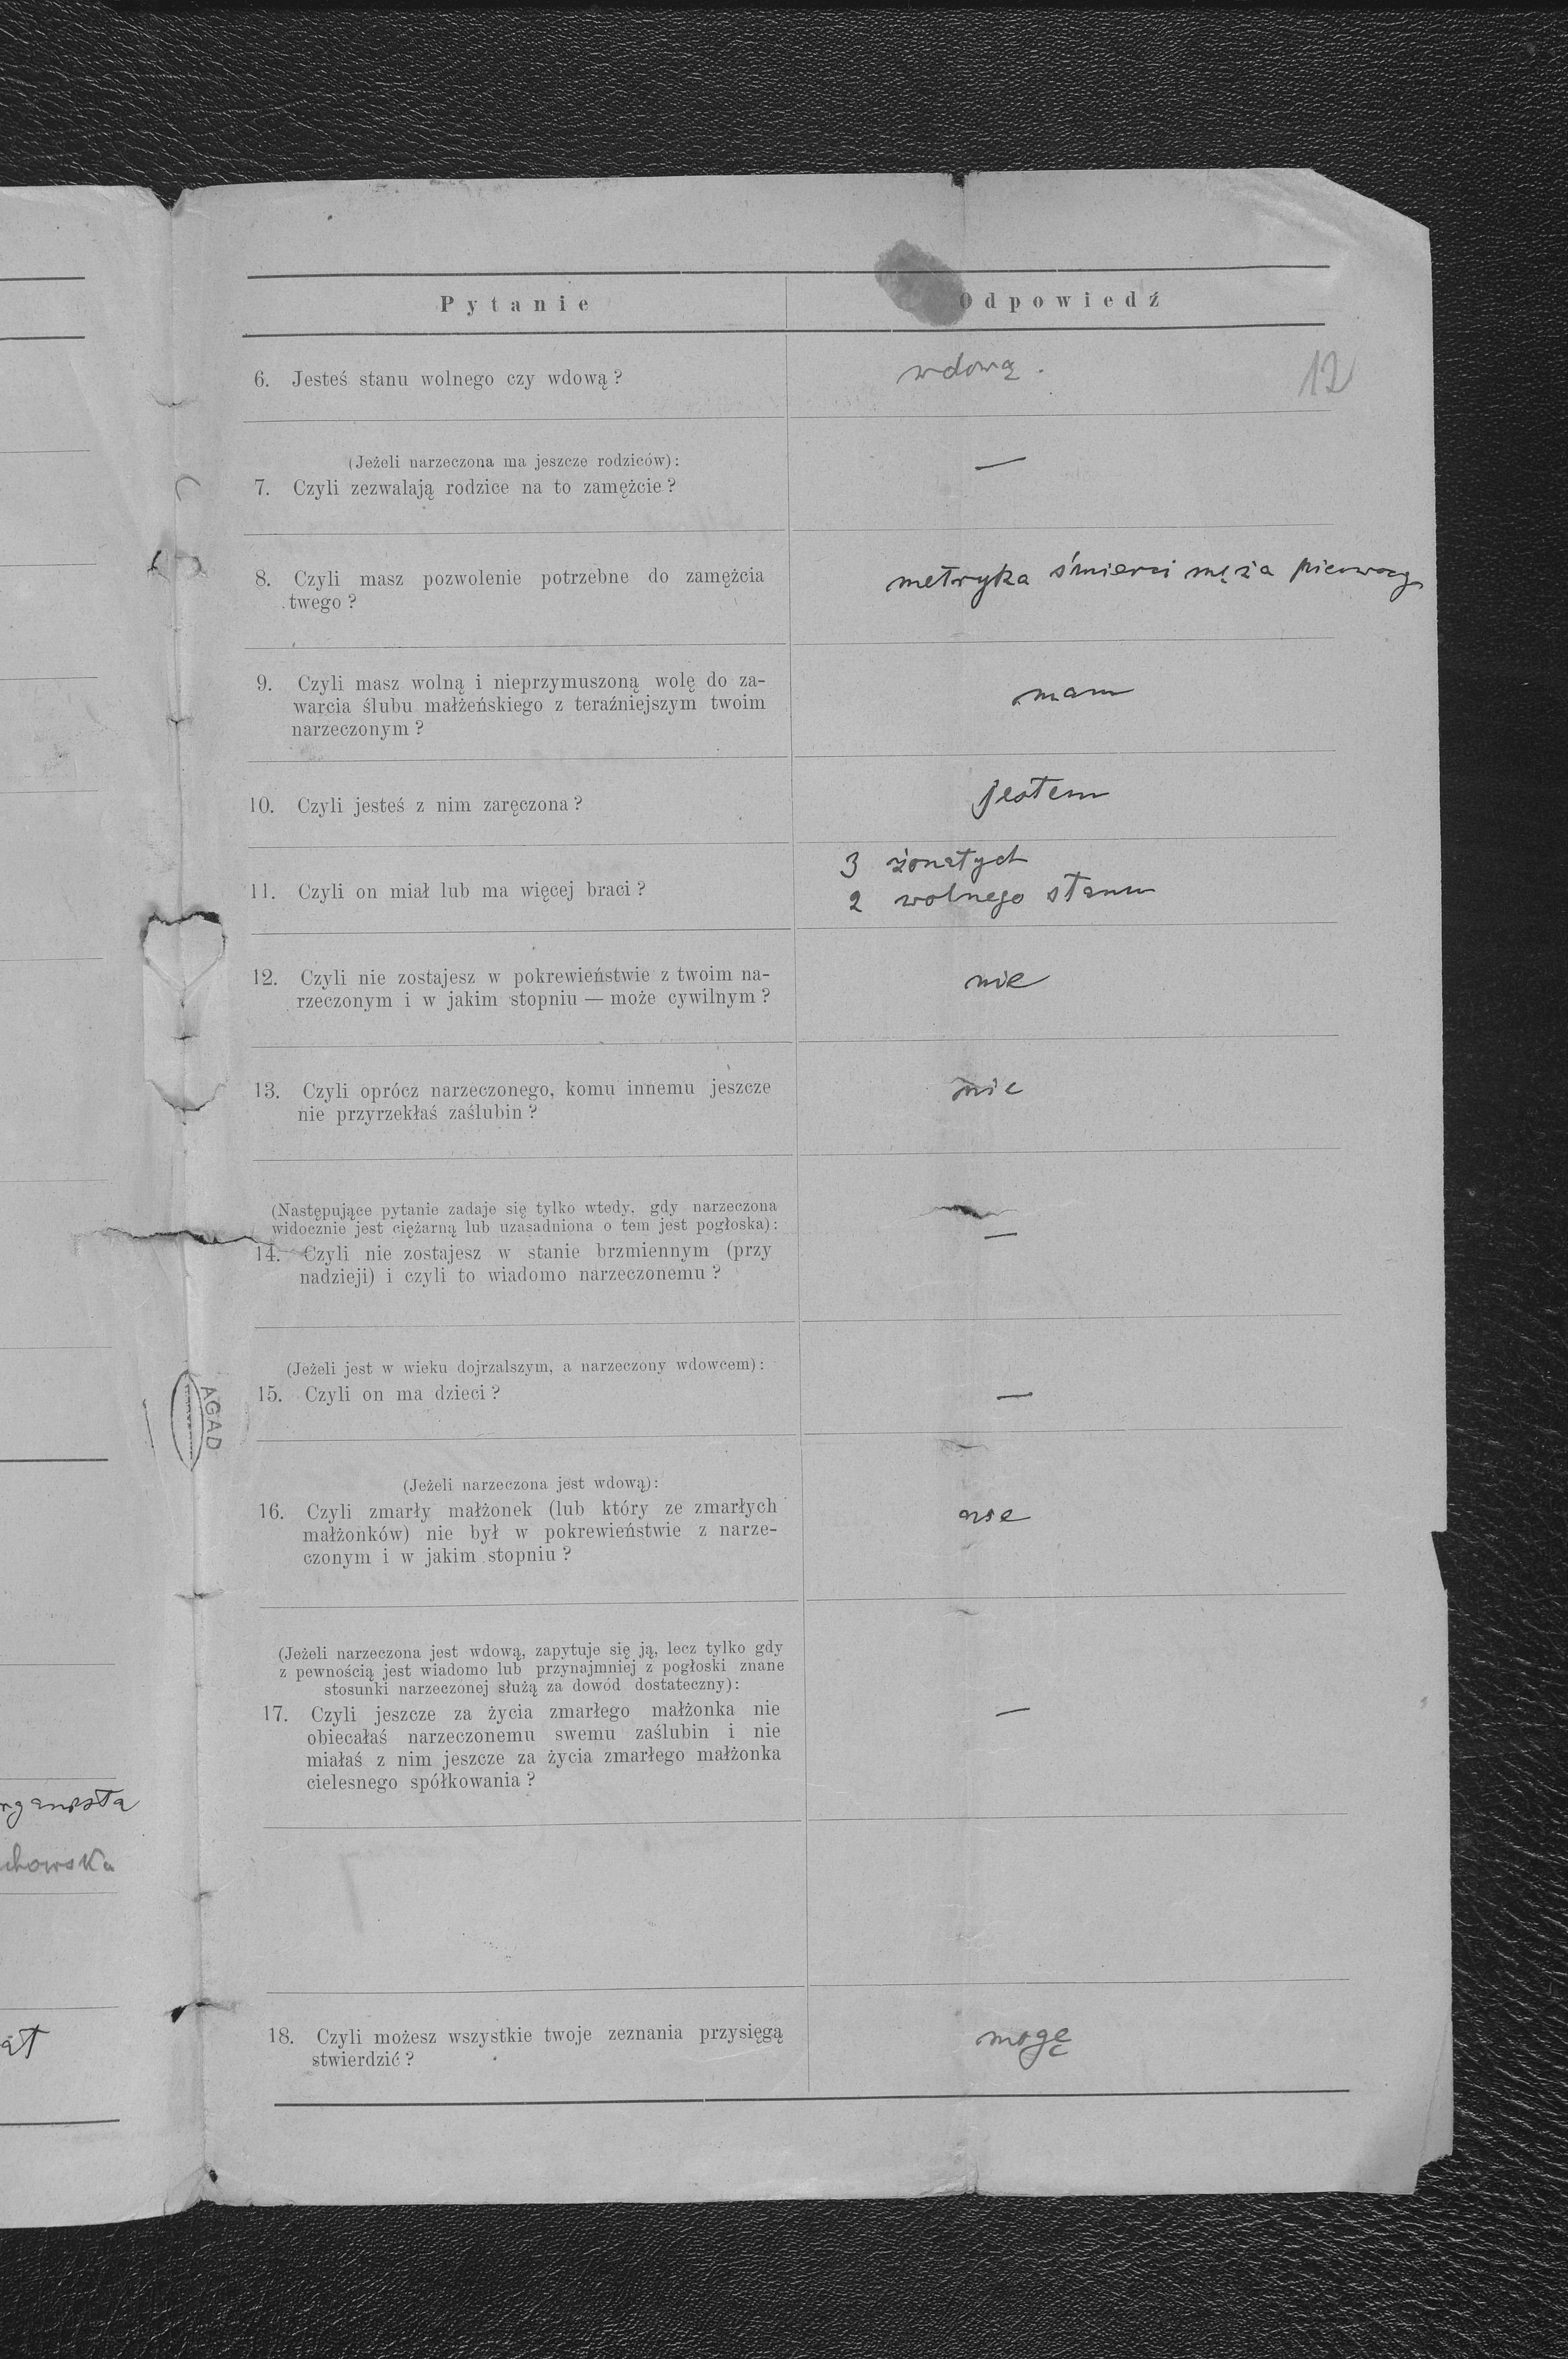 Pytanie
Odpowiedź
6. Jesteś stanu wolnego czy wdową?
wdową.
12
(Jeżeli narzeczona ma jeszcze rodziców):
7. Czyli zezwalają rodzice na to zamężcie?
—
8. Czyli masz pozwolenie potrzebne do zamężcia
twego?
metryka śmierci męża
9. Czyli masz wolną i nieprzymuszoną wolę do za-
warcia ślubu małżeńskiego z teraźniejszym twoim
narzeczonym?
mam
10. Czyli jesteś z nim zaręczona?
jestem
11. Czyli on miał lub ma więcej braci?
3 żonatych
2 wolnego stanu
12. Czyli nie zostajesz w pokrewieństwie z twoim na-
rzeczonym i w jakim stopniu — może cywilnym?
nie
13. Czyli oprócz narzeczonego, komu innemu jeszcze
nie przyrzekłaś zaślubin?
nie
(Następujące pytanie zadaje się tylko wtedy, gdy narzeczona
widocznie jest ciężarną lub uzasadniona o tem jest pogłoska):
14. Czyli nie zostajesz w stanie brzmiennym (przy
nadzieji) i czyli to wiadomo narzeczonemu?
—
(Jeżeli jest w wieku dojrzalszym, a narzeczony wdowcem):
15. Czyli on ma dzieci?
—
(Jeżeli narzeczona jest wdową):
16. Czyli zmarły małżonek (lub który ze zmarłych
małżonków) nie był w pokrewieństwie z narze-
czonym i w jakim stopniu?
nie
(Jeżeli narzeczona jest wdową, zapytuje się ją, lecz tylko gdy
z pewnością jest wiadomo lub przynajmniej z pogłoski znane
stosunki narzeczonej służą za dowód dostateczny):
17. Czyli jeszcze za życia zmarłego małżonka nie
obiecałaś narzeczonemu swemu zaślubin i nie
miałaś z nim jeszcze za życia zmarłego małżonka
cielesnego spółkowania?
—
18. Czyli możesz wszystkie twoje zeznania przysięgą
stwierdzić?
mogę
AGAD